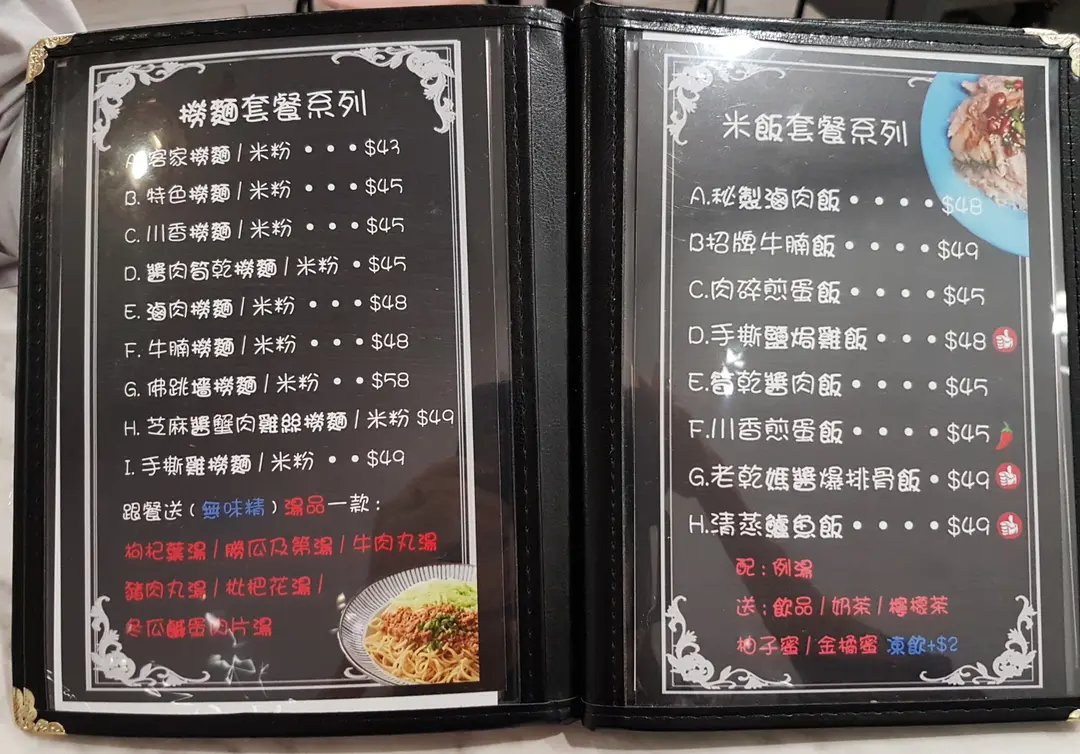 撈麵套餐系列
A. 客家撈麵 / 米粉 • • • $43
B. 特色撈麵 / 米粉 • • • $45
C. 川香撈麵 / 米粉 • • • $45
D. 醬肉筍乾撈麵 / 米粉 • $45
E. 滷肉撈麵 / 米粉 • • • $48
F. 牛腩撈麵 / 米粉 • • • $48
G. 佛跳墻撈麵 / 米粉 • • $58
H. 芝麻醬蟹肉雞絲撈麵 / 米粉 $49
I. 手撕雞撈麵 / 米粉 • • $49
跟餐送（無味精）湯品一款：
枸杞葉湯 / 勝瓜及第湯 / 牛肉丸湯
豬肉丸湯 / 枇杷花湯 /
冬瓜鹹蛋肉片湯
米飯套餐系列
A.秘製滷肉飯 • • • • $48
B招牌牛腩飯 • • • • $49
C.肉碎煎蛋飯 • • • • $45
D.手撕鹽焗雞飯 • • • • $48
E.筍乾醬肉飯 • • • • $45
F.川香煎蛋飯 • • • • $45
G.老乾媽醬爆排骨飯 • $49
H.清蒸鱸魚飯 • • • • $49
配：例湯
送：飲品 / 奶茶 / 檸檬茶
柚子蜜 / 金橘蜜 凍飲+$2